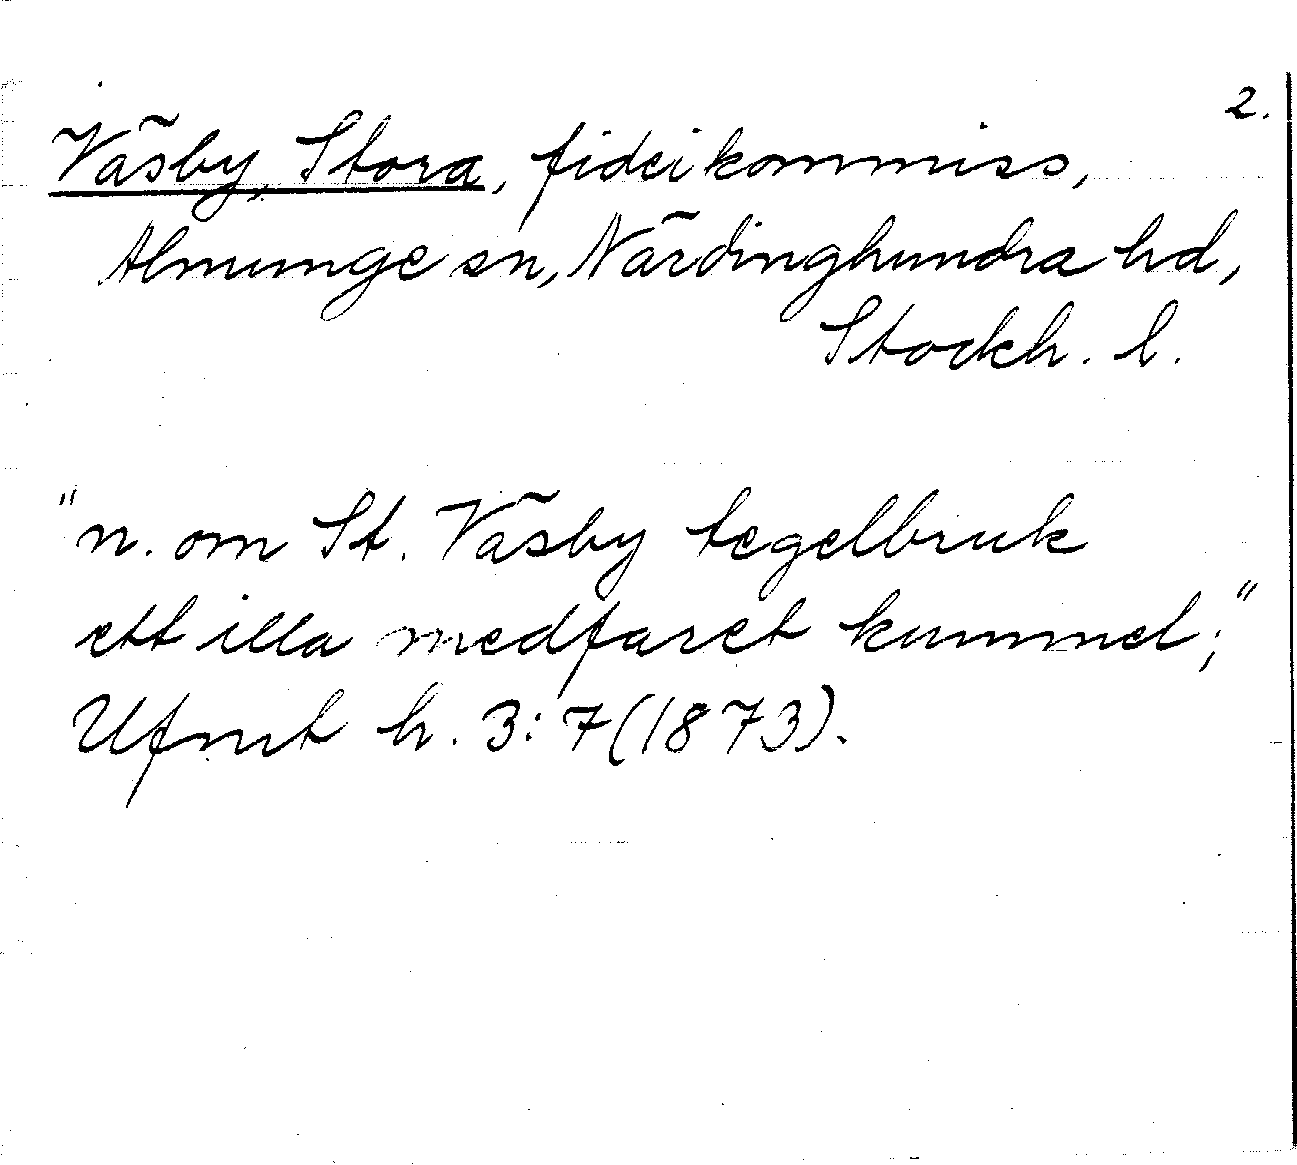 2.
Väsby, Stora, fideikommiss,
Almunge sn, Närdinghundra hd,
Stockh. l.
"n. om St. Väsby tegelbruk
ett illa medfaret kummel;"
Ufmt h. 3:7 (1873).